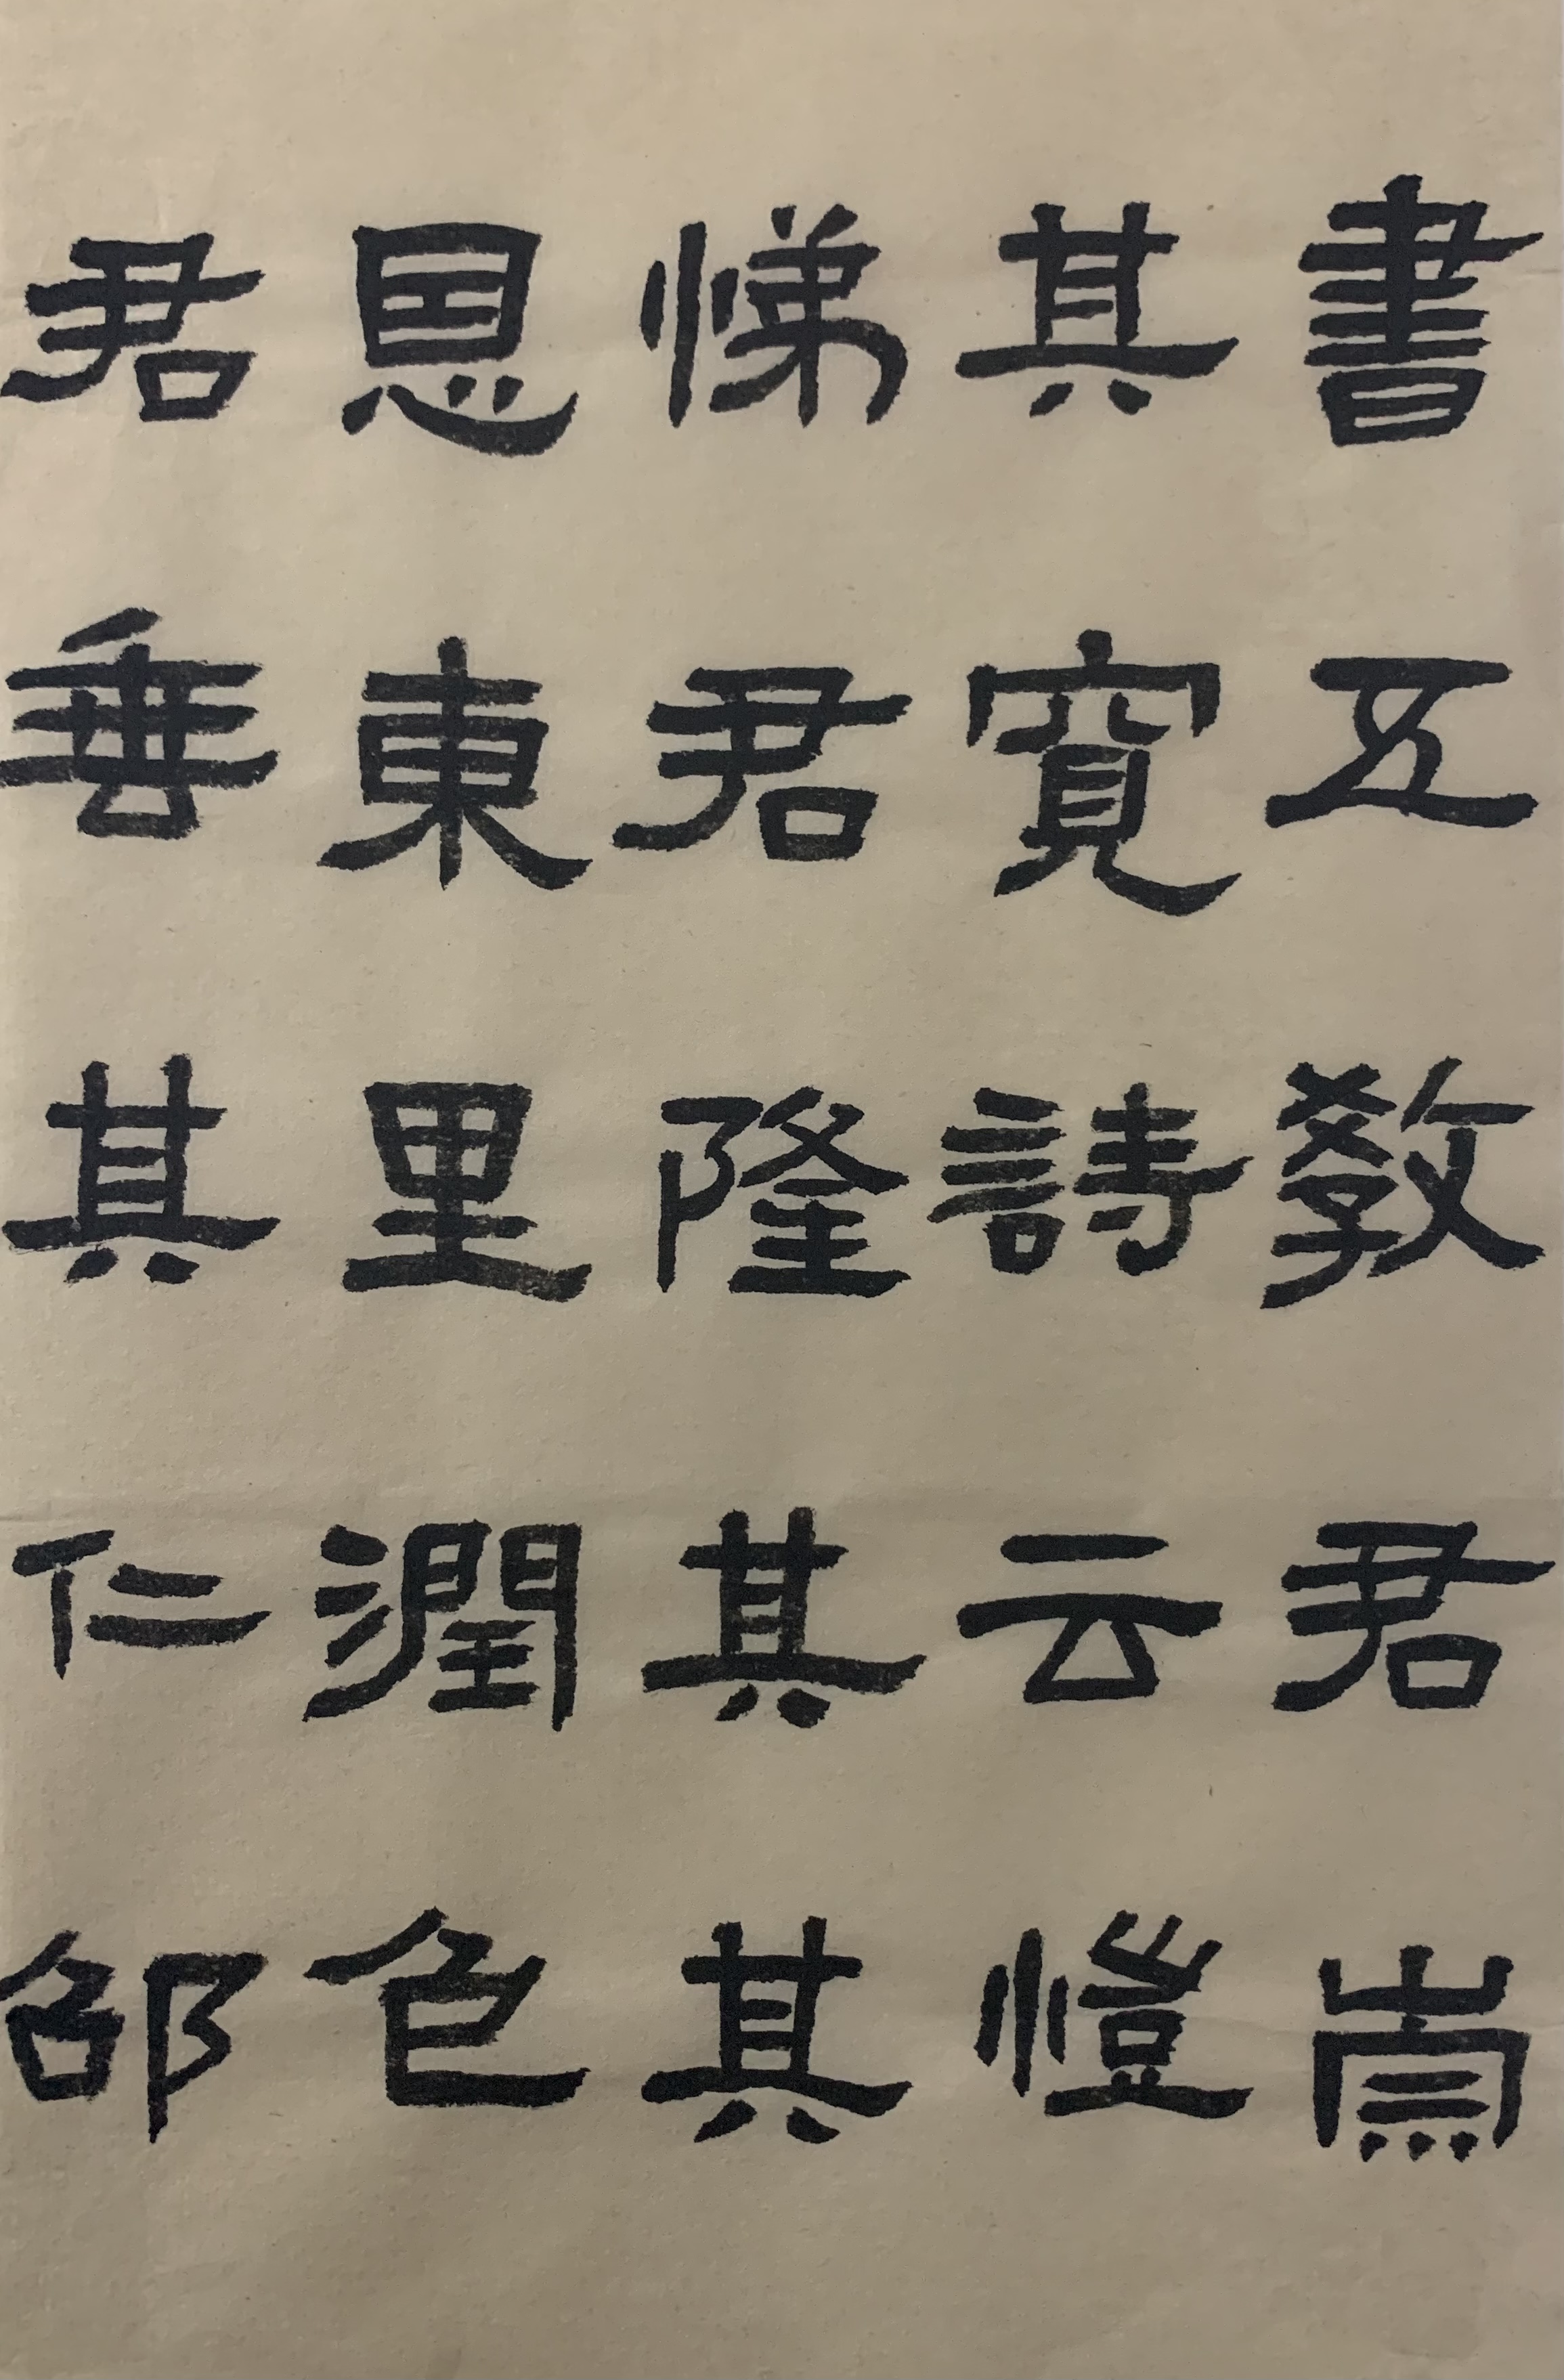 書五教君崇
其寬詩云愷
悌君隆其其
恩東里潤色
君垂其仁邵